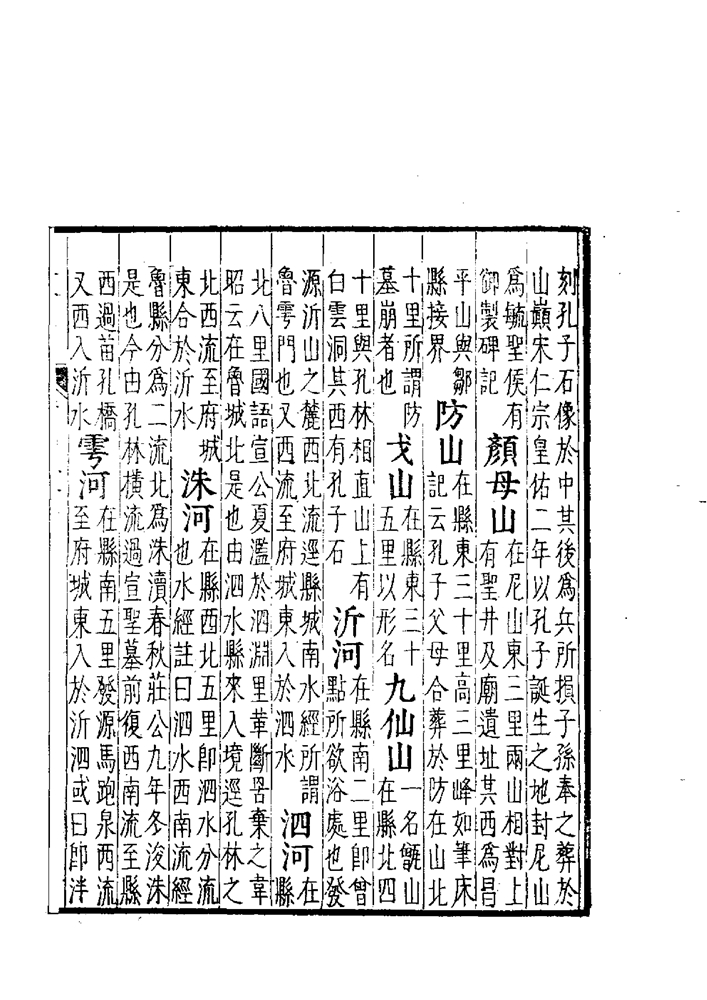 刻孔子石像於中其後爲兵所損子孫奉之葬於
山巔宋仁宗皇佑二年以孔子誕生之地封尼山
爲毓聖侯有
御製碑記
顏母山
在尼山東三里兩山相對上
有聖井及廟遺址其西爲昌
平山與鄒
縣接界
防山
在縣東三十里高三里峰如筆床
記云孔子父母合葬於防在山北
十里所謂防
墓崩者也
戈山
在縣東三十
五里以形名
九仙山
一名甑山
在縣北四
十里與孔林相直山上有
白雲洞其西有孔子石
沂河
在縣南二里卽曾
點所欲浴處也發
源沂山之麓西北流逕縣城南水經所謂
魯雩門也又西流至府城東入於泗水
泗河
在
縣
北八里國語宣公夏濫於泗淵里革斷罟棄之韋
昭云在魯城北是也由泗水縣來入境逕孔林之
北西流至府城
東合於沂水
洙河
在縣西北五里卽泗水分流
也水經註曰泗水西南流經
魯縣分爲二流北爲洙瀆春秋莊公九年冬浚洙
是也今由孔林橫流過宣聖墓前復西南流至縣
西過苗孔橋
又西入沂水
雩河
在縣南五里發源馬跑泉西流
至府城東入於沂泗或曰卽泮